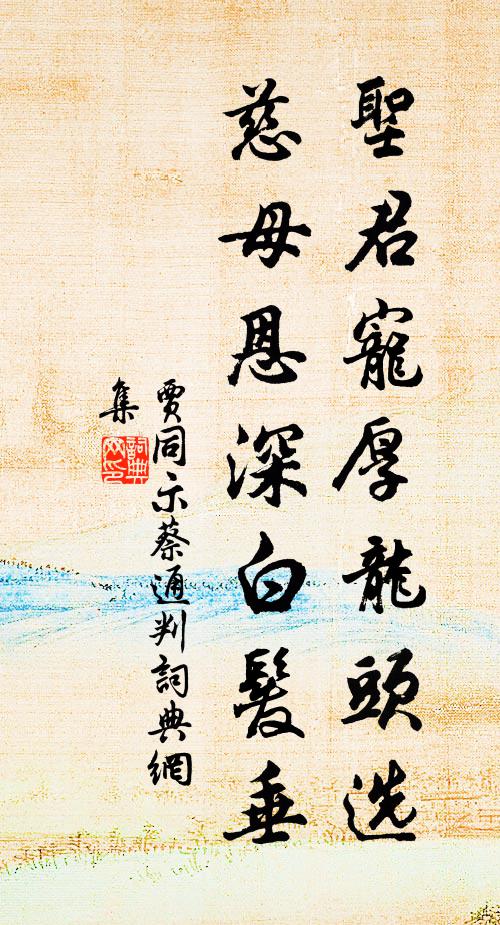 聖君寵厚龍頭选
慈母恩深白髮垂
賈同示蔡通判詞典網
集
詞典网印